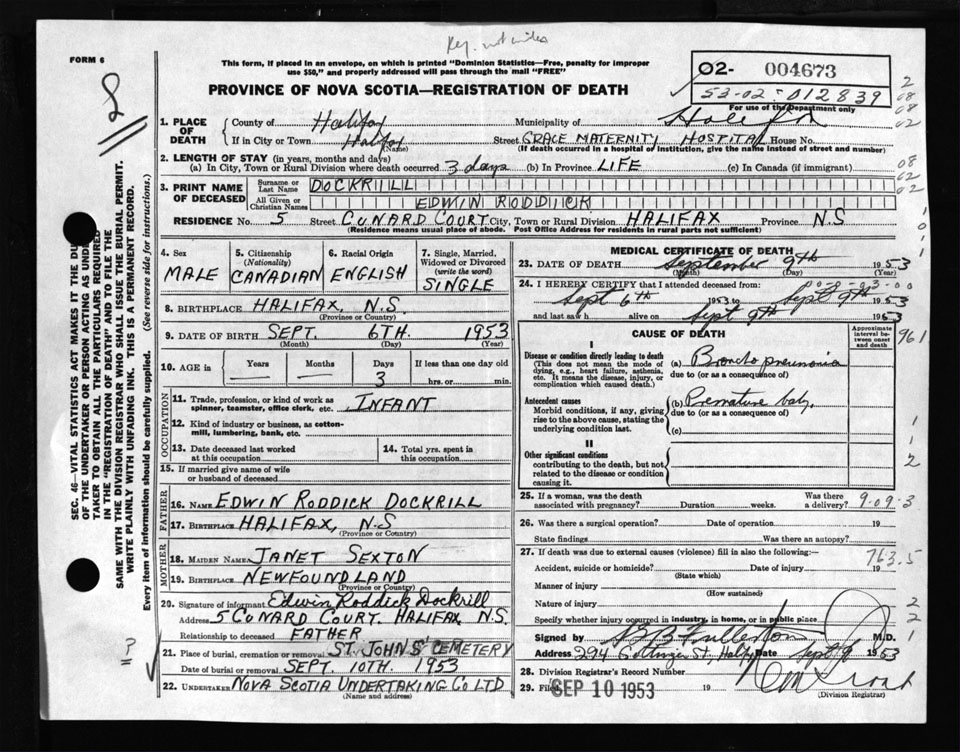 Reg. not
FORM 6
This form, if placed in an envelope, on which is printed "Dominion Statistics—Free, penalty for improper
use $50," and properly addressed will pass through the mail "FREE"
PROVINCE OF NOVA SCOTIA—REGISTRATION OF DEATH
02- 004673
53-02-012839
For use of the Department only
2
08
08
02
1. PLACE OF DEATH
County of Halifax Municipality of Halifax
If in City or Town Halifax (Name) Street GRACE MATERNITY HOSPITAL House No.
(If death occurred in a hospital or institution, give the name instead of street and number)
2. LENGTH OF STAY (in years, months and days)
(a) In City, Town or Rural Division where death occurred 3 days (b) In Province LIFE (c) In Canada (if immigrant)
08
02
02
3. PRINT NAME OF DECEASED
Surname or Last Name DOCKRILL
All Given or Christian Names EDWIN RODDICK
RESIDENCE No. 5 Street CUNARD COURT City, Town or Rural Division HALIFAX Province N.S
(Residence means usual place of abode. Post Office Address for residents in rural parts not sufficient)
4. Sex MALE
5. Citizenship (Nationality) CANADIAN
6. Racial Origin ENGLISH
7. Single, Married, Widowed or Divorced (write the word) SINGLE
8. BIRTHPLACE HALIFAX, N.S.
(Province or Country)
9. DATE OF BIRTH SEPT. 6TH. 1953
(Month) (Day) (Year)
10. AGE in Years Months Days If less than one day old
— — 3 hrs. or min.
OCCUPATION
11. Trade, profession, or kind of work as
spinner, teamster, office clerk, etc. INFANT
12. Kind of industry or business, as cotton-
mill, lumbering, bank, etc.
13. Date deceased last worked
at this occupation
14. Total yrs. spent in
this occupation
15. If married give name of wife
or husband of deceased
FATHER
16. NAME EDWIN RODDICK DOCKRILL
17. BIRTHPLACE HALIFAX, N.S
(Province or Country)
MOTHER
18. MAIDEN NAME JANET SEXTON
19. BIRTHPLACE NEWFOUNDLAND
(Province or Country)
20. Signature of informant Edwin Roddick Dockrill
Address 5 CUNARD COURT. HALIFAX N.S.
Relationship to deceased FATHER
21. Place of burial, cremation or removal ST. JOHN'S CEMETERY
Date of burial or removal SEPT. 10TH. 1953
22. UNDERTAKER NOVA SCOTIA UNDERTAKING CO LTD
(Name and address)
MEDICAL CERTIFICATE OF DEATH
23. DATE OF DEATH September 9th 1953
(Month) (Day) (Year)
24. I HEREBY CERTIFY that I attended deceased from:
Sept 6th 1953 to Sept 9th 1953
and last saw h alive on Sept 9th 1953
CAUSE OF DEATH
Approximate interval between onset and death
961
I
Disease or condition directly leading to death
(This does not mean the mode of
dying, e.g., heart failure, asthenia,
etc. It means the disease, injury, or
complication which caused death.)
(a) Broncho pneumonia
due to (or as a consequence of)
Antecedent causes
Morbid conditions, if any, giving
rise to the above cause, stating the
underlying condition last.
(b) Premature baby.
due to (or as a consequence of)
(c)
II
Other significant conditions
contributing to the death, but not
related to the disease or condition
causing it.
1
1
2
25. If a woman, was the death
associated with pregnancy? Duration weeks. Was there a delivery?
9-09-3
26. Was there a surgical operation? Date of operation 19
State findings Was there an autopsy?
27. If death was due to external causes (violence) fill in also the following:—
763.5
Accident, suicide or homicide? Date of injury 19
(State which)
Manner of injury
(How sustained)
Nature of injury
Specify whether injury occurred in industry, in home, or in public place
2
2
1
Signed by Fullerton M.D.
Address 294 Gottingen St, Halifax Date Sept 9 1953
28. Division Registrar's Record Number
29. Filed SEP 10 1953 19
(Division Registrar)
SEC. 46—VITAL STATISTICS ACT MAKES IT THE DU
OF THE UNDERTAKER OR PERSON ACTING AS UND
TAKER TO OBTAIN ALL THE PARTICULARS REQUIRED
IN THE "REGISTRATION OF DEATH" AND TO FILE THE
SAME WITH THE DIVISION REGISTRAR WHO SHALL ISSUE THE BURIAL PERMIT.
WRITE PLAINLY WITH UNFADING INK. THIS IS A PERMANENT RECORD.
Every item of information should be carefully supplied. (See reverse side for instructions.)
?